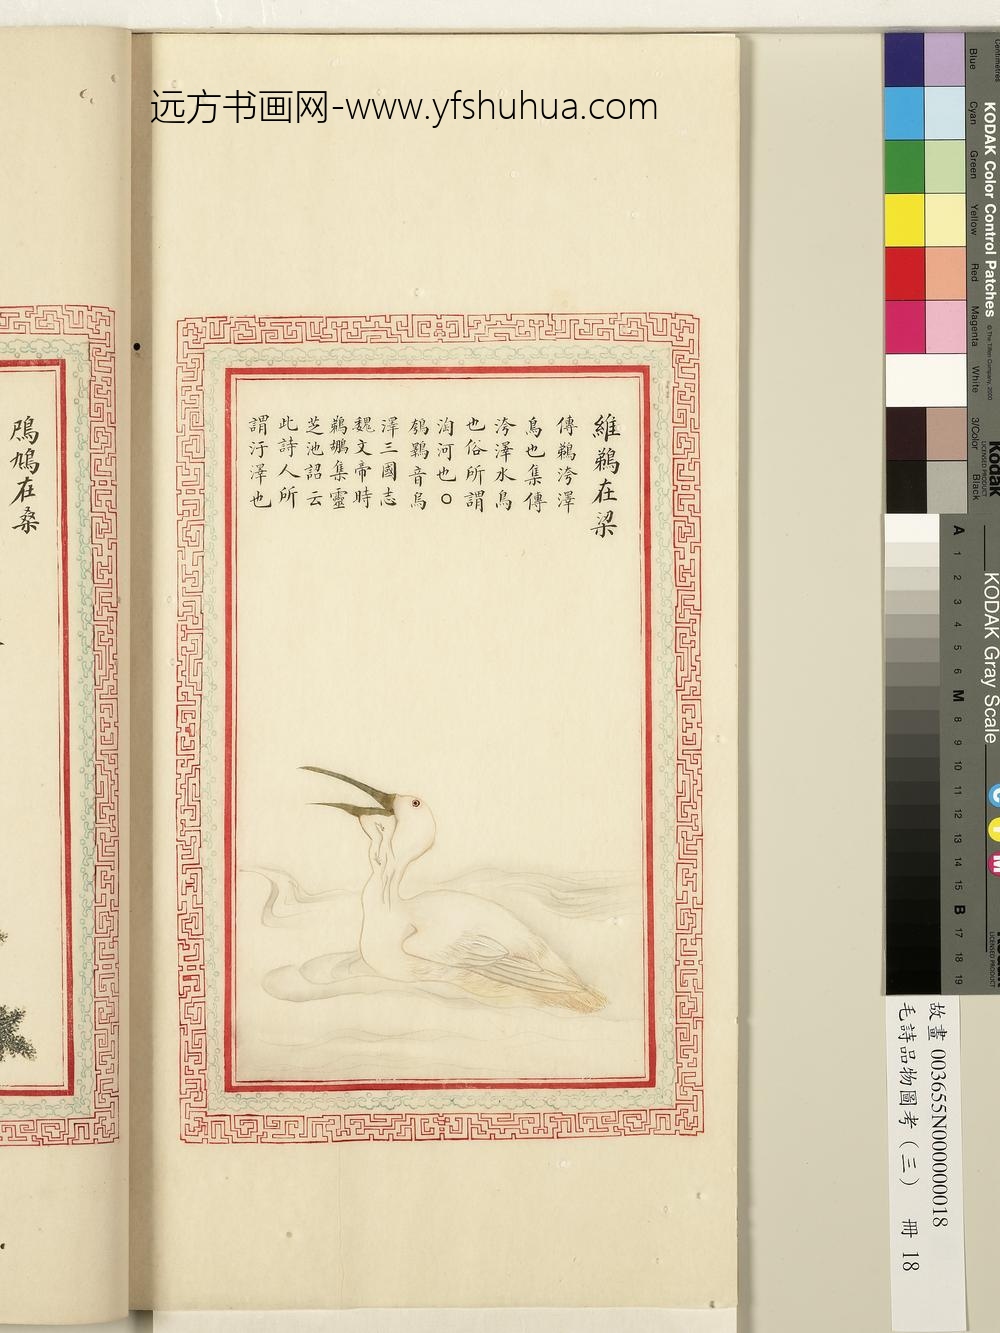 远方书画网-www.yfshuhua.com
維鵜在梁
傳鵜洿澤
鳥也集傳
洿澤水鳥
也俗所謂
淘河也○
鴮鸅音烏
澤三國志
魏文帝時
鵜鶘集靈
芝池詔云
此詩人所
謂汙澤也
鳲鳩在桑
KODAK Color Control Patches
© The Tiffen Company, 2000
Kodak
LICENSED PRODUCT
Centimetres
Blue
Cyan
Green
Yellow
Red
Magenta
White
3/Color
Black
KODAK Gray Scale
C
Y
M
Kodak
LICENSED PRODUCT
A 1 2 3 4 5 6 M 8 9 10 11 12 13 14 15 B 17 18 19
故畫 003655N000000018
毛詩品物圖考（三） 冊 18